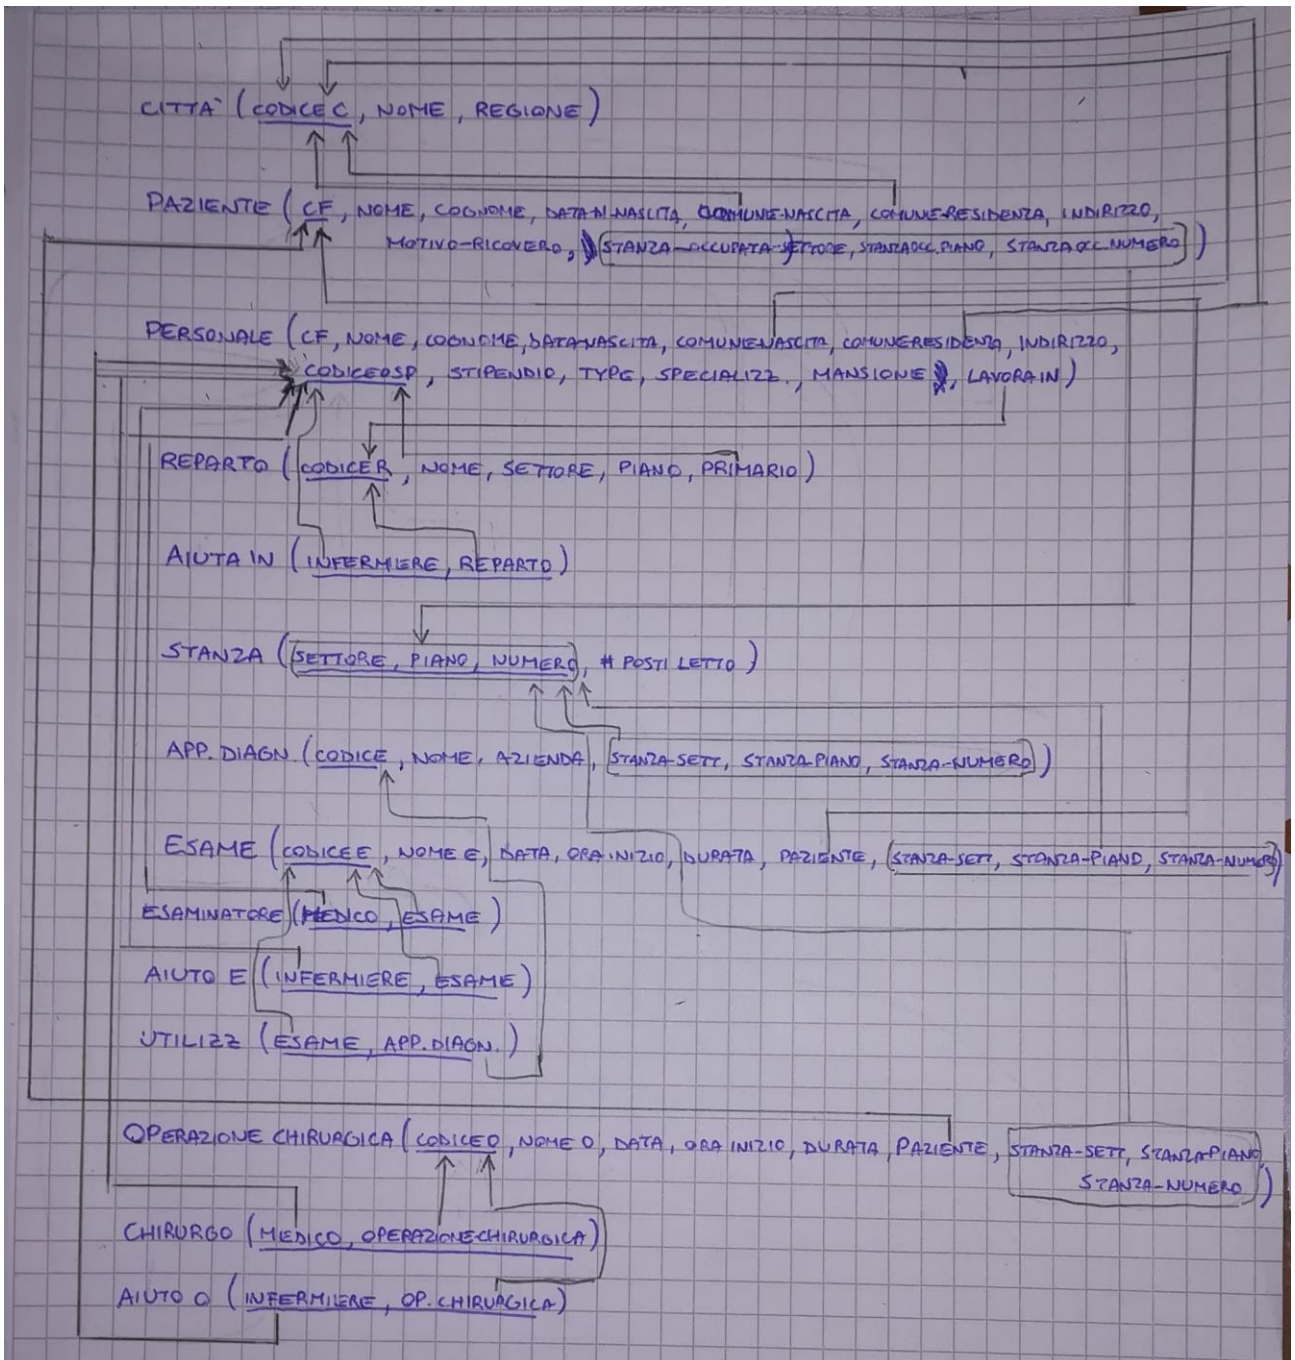 CITTÀ (CODICE C, NOME, REGIONE)
PAZIENTE (CF, NOME, COGNOME, DATA-N-NASCITA, COMUNE-NASCITA, COMUNE-RESIDENZA, INDIRIZZO,
MOTIVO-RICOVERO, (STANZA-OCCUPATA-SETTORE, STANZAOCC.PIANO, STANZAOCC.NUMERO))
PERSONALE (CF, NOME, COGNOME, DATA-NASCITA, COMUNENASCITA, COMUNERESIDENZA, INDIRIZZO,
CODICEOSP, STIPENDIO, TYPE, SPECIALIZZ., MANSIONE, LAVORAIN)
REPARTO (CODICER, NOME, SETTORE, PIANO, PRIMARIO)
AIUTA IN (INFERMIERE, REPARTO)
STANZA (SETTORE, PIANO, NUMERO, # POSTI LETTO)
APP. DIAGN (CODICE, NOME, AZIENDA, (STANZA-SETT, STANZA-PIANO, STANZA-NUMERO))
ESAME (CODICE E, NOME E, DATA, ORA INIZIO, DURATA, PAZIENTE, (STANZA-SETT, STANZA-PIANO, STANZA-NUMERO))
ESAMINATORE (MEDICO, ESAME)
AIUTO E (INFERMIERE, ESAME)
UTILIZZ (ESAME, APP.DIAGN.)
OPERAZIONE CHIRURGICA (CODICE O, NOME O, DATA, ORA INIZIO, DURATA, PAZIENTE, STANZA-SETT, STANZA-PIANO,
STANZA-NUMERO)
CHIRURGO (MEDICO, OPERAZIONE-CHIRURGICA)
AIUTO O (INFERMIERE, OP. CHIRURGICA)